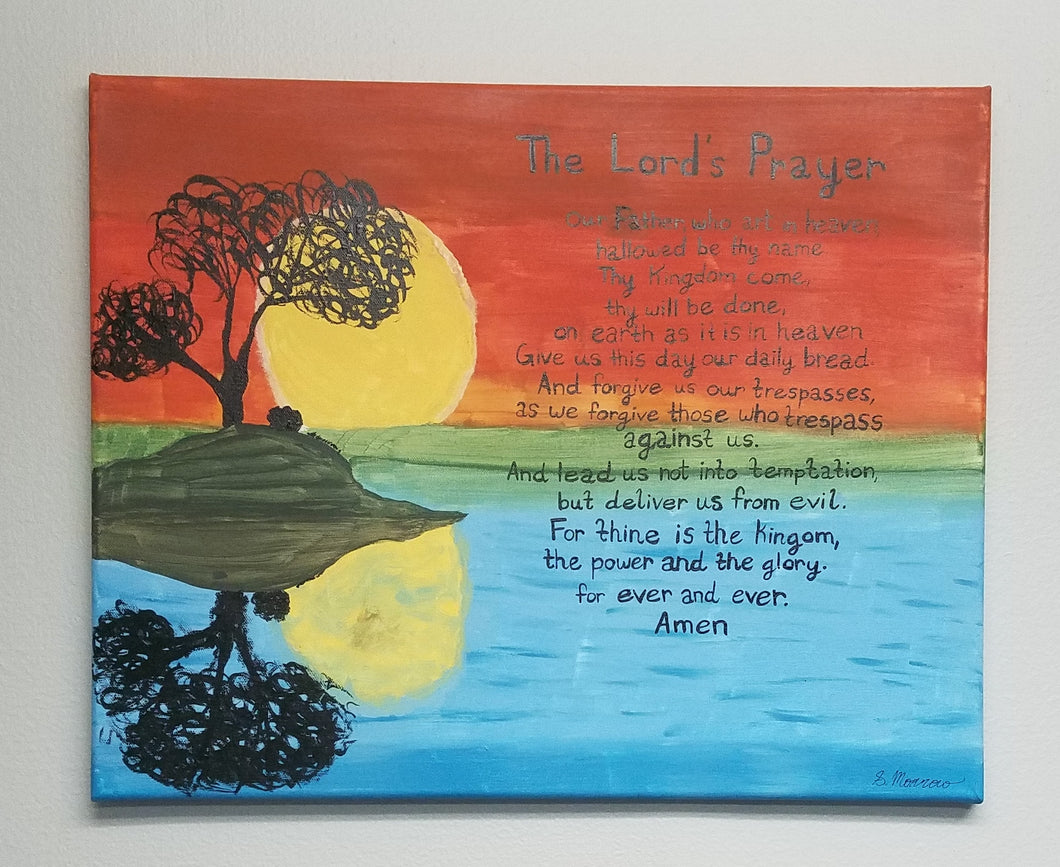 The Lord's Prayer
Our Father, who art in heaven,
hallowed be thy name
Thy Kingdom come,
thy will be done,
on earth as it is in heaven
Give us this day our daily bread.
And forgive us our trespasses,
as we forgive those who trespass
against us.
And lead us not into temptation,
but deliver us from evil.
For thine is the kingom,
the power and the glory.
for ever and ever.
Amen
S. Morrow